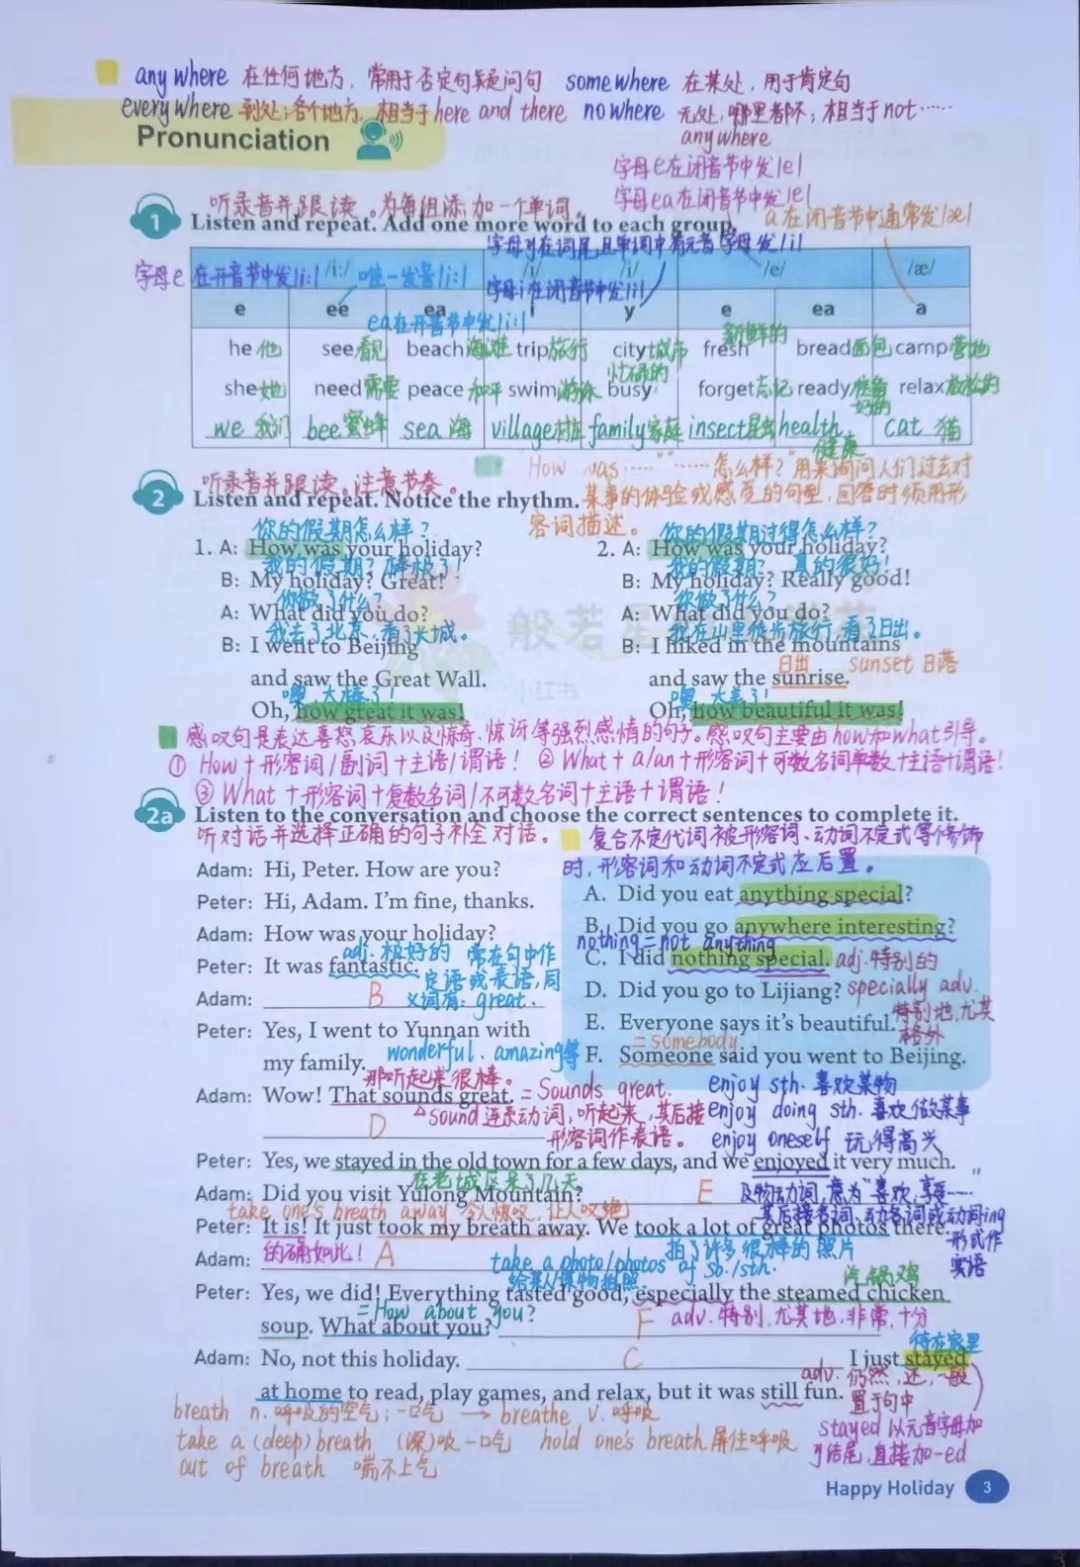 anywhere 在任何地方，常用于否定句疑问句 somewhere 在某处，用于肯定句
everywhere 到处；各个地方，相当于here and there nowhere 无处，哪里都不；相当于not……
anywhere
Pronunciation
字母e在闭音节中发/e/
字母ea在闭音节中发/e/
听录音并跟读。为每组添加一个单词。
a在闭音节中通常发/æ/
1 Listen and repeat. Add one more word to each group.
字母y在词尾,且单词中有元音字母发/i/
字母e在开音节中发/i:/ /i:/ 唯一发音/i:/ /i/ /i/ /e/ /æ/
字母i在闭音节中发/i/
e ee ea i y e ea a
ea在开音节中发/i:/
he 他 see 看见 beach 海滩 trip 旅行 city 城市 fresh 新鲜的 bread 面包 camp 营地
she 她 need 需要 peace 和平 swim 游泳 busy 忙碌的 forget 忘记 ready 准备好的 relax 放松的
we 我们 bee 蜜蜂 sea 海 village 村庄 family 家庭 insect 昆虫 health 健康 cat 猫
How was……"……怎么样？"用来询问人们过去对
某事的体验或感受的句型，回答时须用形
容词描述。
听录音并跟读。注意节奏。
2 Listen and repeat. Notice the rhythm.
你的假期怎么样？
1. A: How was your holiday?
我的假期？棒极了！
B: My holiday? Great!
你做了什么？
A: What did you do?
我去了北京，看了长城。
B: I went to Beijing
and saw the Great Wall.
噢,太棒了！
Oh, how great it was!
你的假期过得怎么样？
2. A: How was your holiday?
我的假期？真的很好！
B: My holiday? Really good!
你做了什么？
A: What did you do?
我在山里徒步旅行,看了日出。
B: I hiked in the mountains
日出 sunset 日落
and saw the sunrise.
噢,太美了！
Oh, how beautiful it was!
小红书
感叹句是表达喜怒哀乐以及惊奇、惊讶等强烈感情的句子。感叹句主要由how和what引导。
① How＋形容词/副词＋主语/谓语！ ② What＋a/an＋形容词＋可数名词单数＋主语＋谓语！
③ What＋形容词＋复数名词/不可数名词＋主语＋谓语！
2a Listen to the conversation and choose the correct sentences to complete it.
听对话并选择正确的句子补全对话。
复合不定代词被形容词、动词不定式等修饰
时，形容词和动词不定式应后置。
Adam: Hi, Peter. How are you?
Peter: Hi, Adam. I'm fine, thanks.
Adam: How was your holiday?
adj. 极好的 常在句中作
定语或表语,同
义词有: great.
wonderful. amazing等
Peter: It was fantastic.
Adam: B
Peter: Yes, I went to Yunnan with
my family.
A. Did you eat anything special?
B. Did you go anywhere interesting?
nothing=not anything
C. I did nothing special. adj.特别的
D. Did you go to Lijiang? specially adv.
特别地,尤其
格外
E. Everyone says it's beautiful.
=somebody
F. Someone said you went to Beijing.
那听起来很棒。
Adam: Wow! That sounds great. = Sounds great.
sound 连系动词,听起来,其后接
形容词作表语。
D
enjoy sth. 喜欢某物
enjoy doing sth. 喜欢做某事
enjoy oneself 玩得高兴
Peter: Yes, we stayed in the old town for a few days, and we enjoyed it very much.
在老城区呆了几天
及物动词,意为"喜欢,享受……"
其后接名词、动名词或动词ing
形式作
宾语
Adam: Did you visit Yulong Mountain? E
take one's breath away 令人惊叹,让人叹绝
Peter: It is! It just took my breath away. We took a lot of great photos there.
的确如此！
拍了许多很棒的照片
Adam: A
take a photo/photos of sb./sth.
给某人/某物拍照
汽锅鸡
Peter: Yes, we did! Everything tasted good, especially the steamed chicken
=How about you?
adv. 特别,尤其地,非常,十分
soup. What about you? F
待在家里
Adam: No, not this holiday. C I just stayed
adv. 仍然,还,一般
置于句中
at home to read, play games, and relax, but it was still fun.
breath n. 呼吸的空气；一口气 → breathe v. 呼吸
take a (deep) breath （深）吸一口气 hold one's breath 屏住呼吸
out of breath 喘不上气
stayed 以元音字母加
y结尾,直接加-ed
Happy Holiday 3